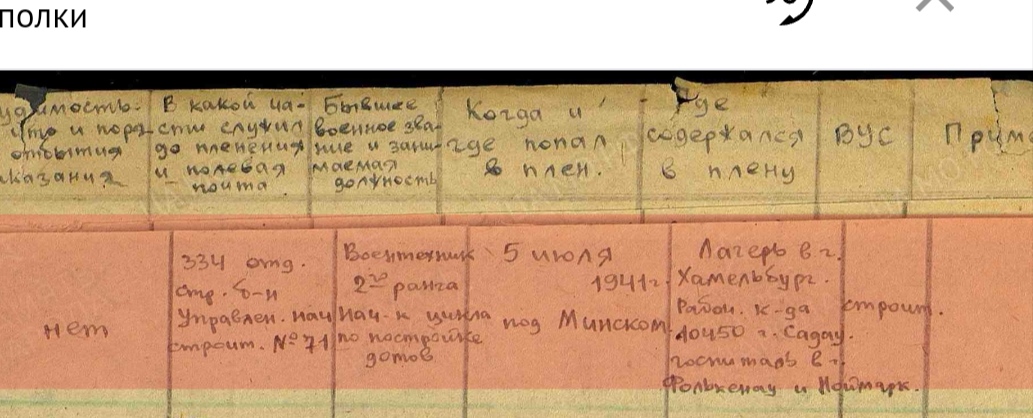 полки
удимость.
что и поря-
отбытия
аказания.
В какой ча-
сти служил
до пленения
и полевая
почта
Бывшее
военное зва-
ние и зани-
маемая
должность
Когда и
где попал
в плен.
Где
содержался
в плену
ВУС
Прим
нет
334 отд.
стр. б-н
Управлен. нач
строит. № 71
Воентехник
2го ранга
Нач-к цикла
по постройке
дотов
5 июля
1941г.
под Минском
Лагерь в г.
Хамельбург.
Рабоч. к-да
10450 г. Садау.
госпиталь в г.
Фолькенау и Ноймарк.
строит.